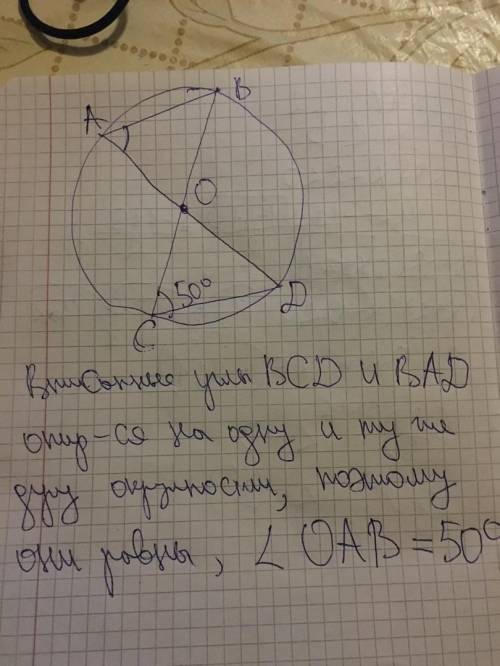 A
B
O
50°
D
C
Вписанные углы BCD и BAD
опир-ся на одну и ту же
дугу окружности, поэтому
они равны, ∠ OAB = 50°